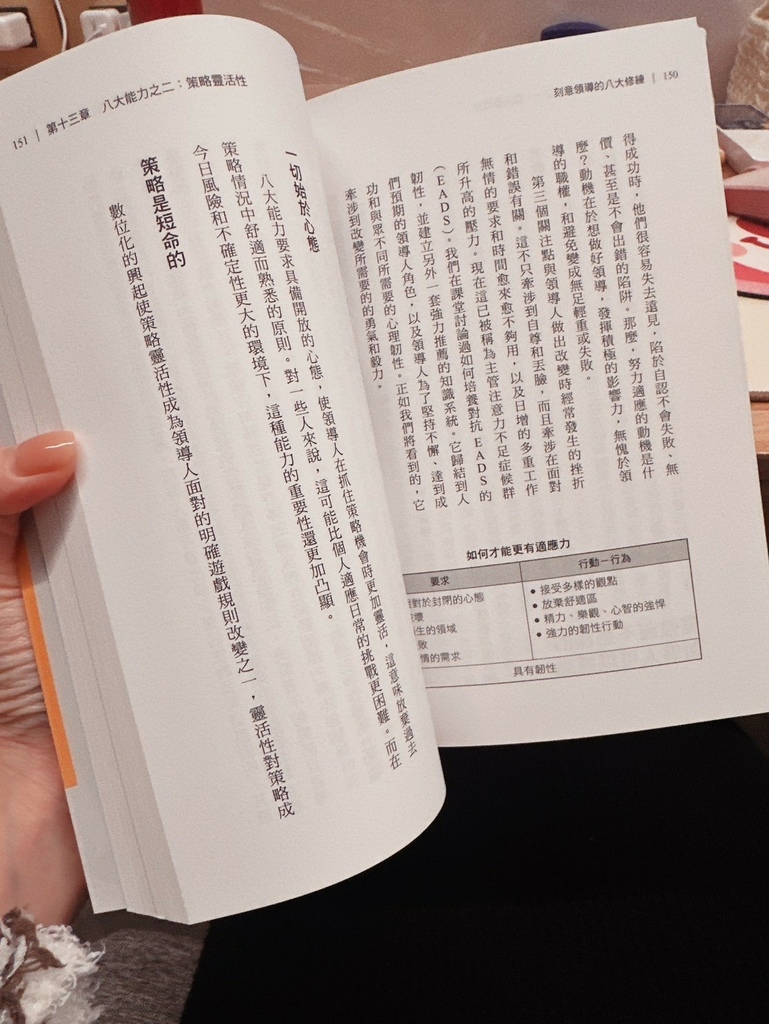 刻意領導的八大修練 | 150
得成功時，他們很容易失去這見，陷於自認不會失敗、無
價、甚至是不會出錯的陷阱。那麼，努力適應的動機是什
麼？動機在於想做好領導，發揮積極的影響力，無愧於領
導的職權，和避免變成無足輕重或失敗。
第三個關注點與領導人做出改變時經常發生的挫折
和錯誤有關。這不只牽涉到自尊和丟臉，而且牽涉在面對
無情的要求和時間愈來愈不夠用，以及日增的多重工作
所升高的壓力。現在這已被稱為主管注意力不足症候群
（EADS）。我們在課堂討論過如何培養對抗 EADS 的
韌性，並建立另外一套強力推薦的知識系統。它歸結到人
們預期的領導人角色，以及領導人為了堅持不懈、達到成
功和與眾不同所需要的心理韌性。正如我們將看到的，它
牽涉到改變所需要的的勇氣和毅力。
如何才能更有適應力
要求
行動－行為
對於封閉的心態
壞
生的領域
敗
情的需求
• 接受多樣的觀點
• 放棄舒適區
• 精力、樂觀、心智的強悍
• 強力的韌性行動
具有韌性
151 | 第十三章 八大能力之二：策略靈活性
一切始於心態
八大能力要求具備開放的心態，使領導人在抓住策略機會時更加靈活，這意味放棄過去
策略情況中舒適而熟悉的原則。對一些人來說，這可能比個人適應日常的挑戰更困難。而在
今日風險和不確定性更大的環境下，這種能力的重要性還更加凸顯。
策略是短命的
數位化的興起使策略靈活性成為領導人面對的明確遊戲規則改變之一，靈活性對策略成